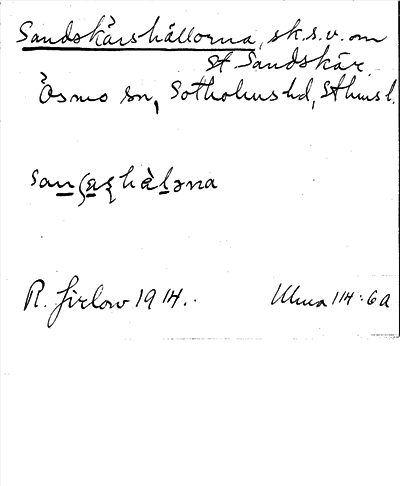 Sandskärshällorna, sk.s.v. om
St Sandskär.
Ösmo sn, Sotholms hd, Sthms l.
R. Firlow 1914.
Ulma 114:6a